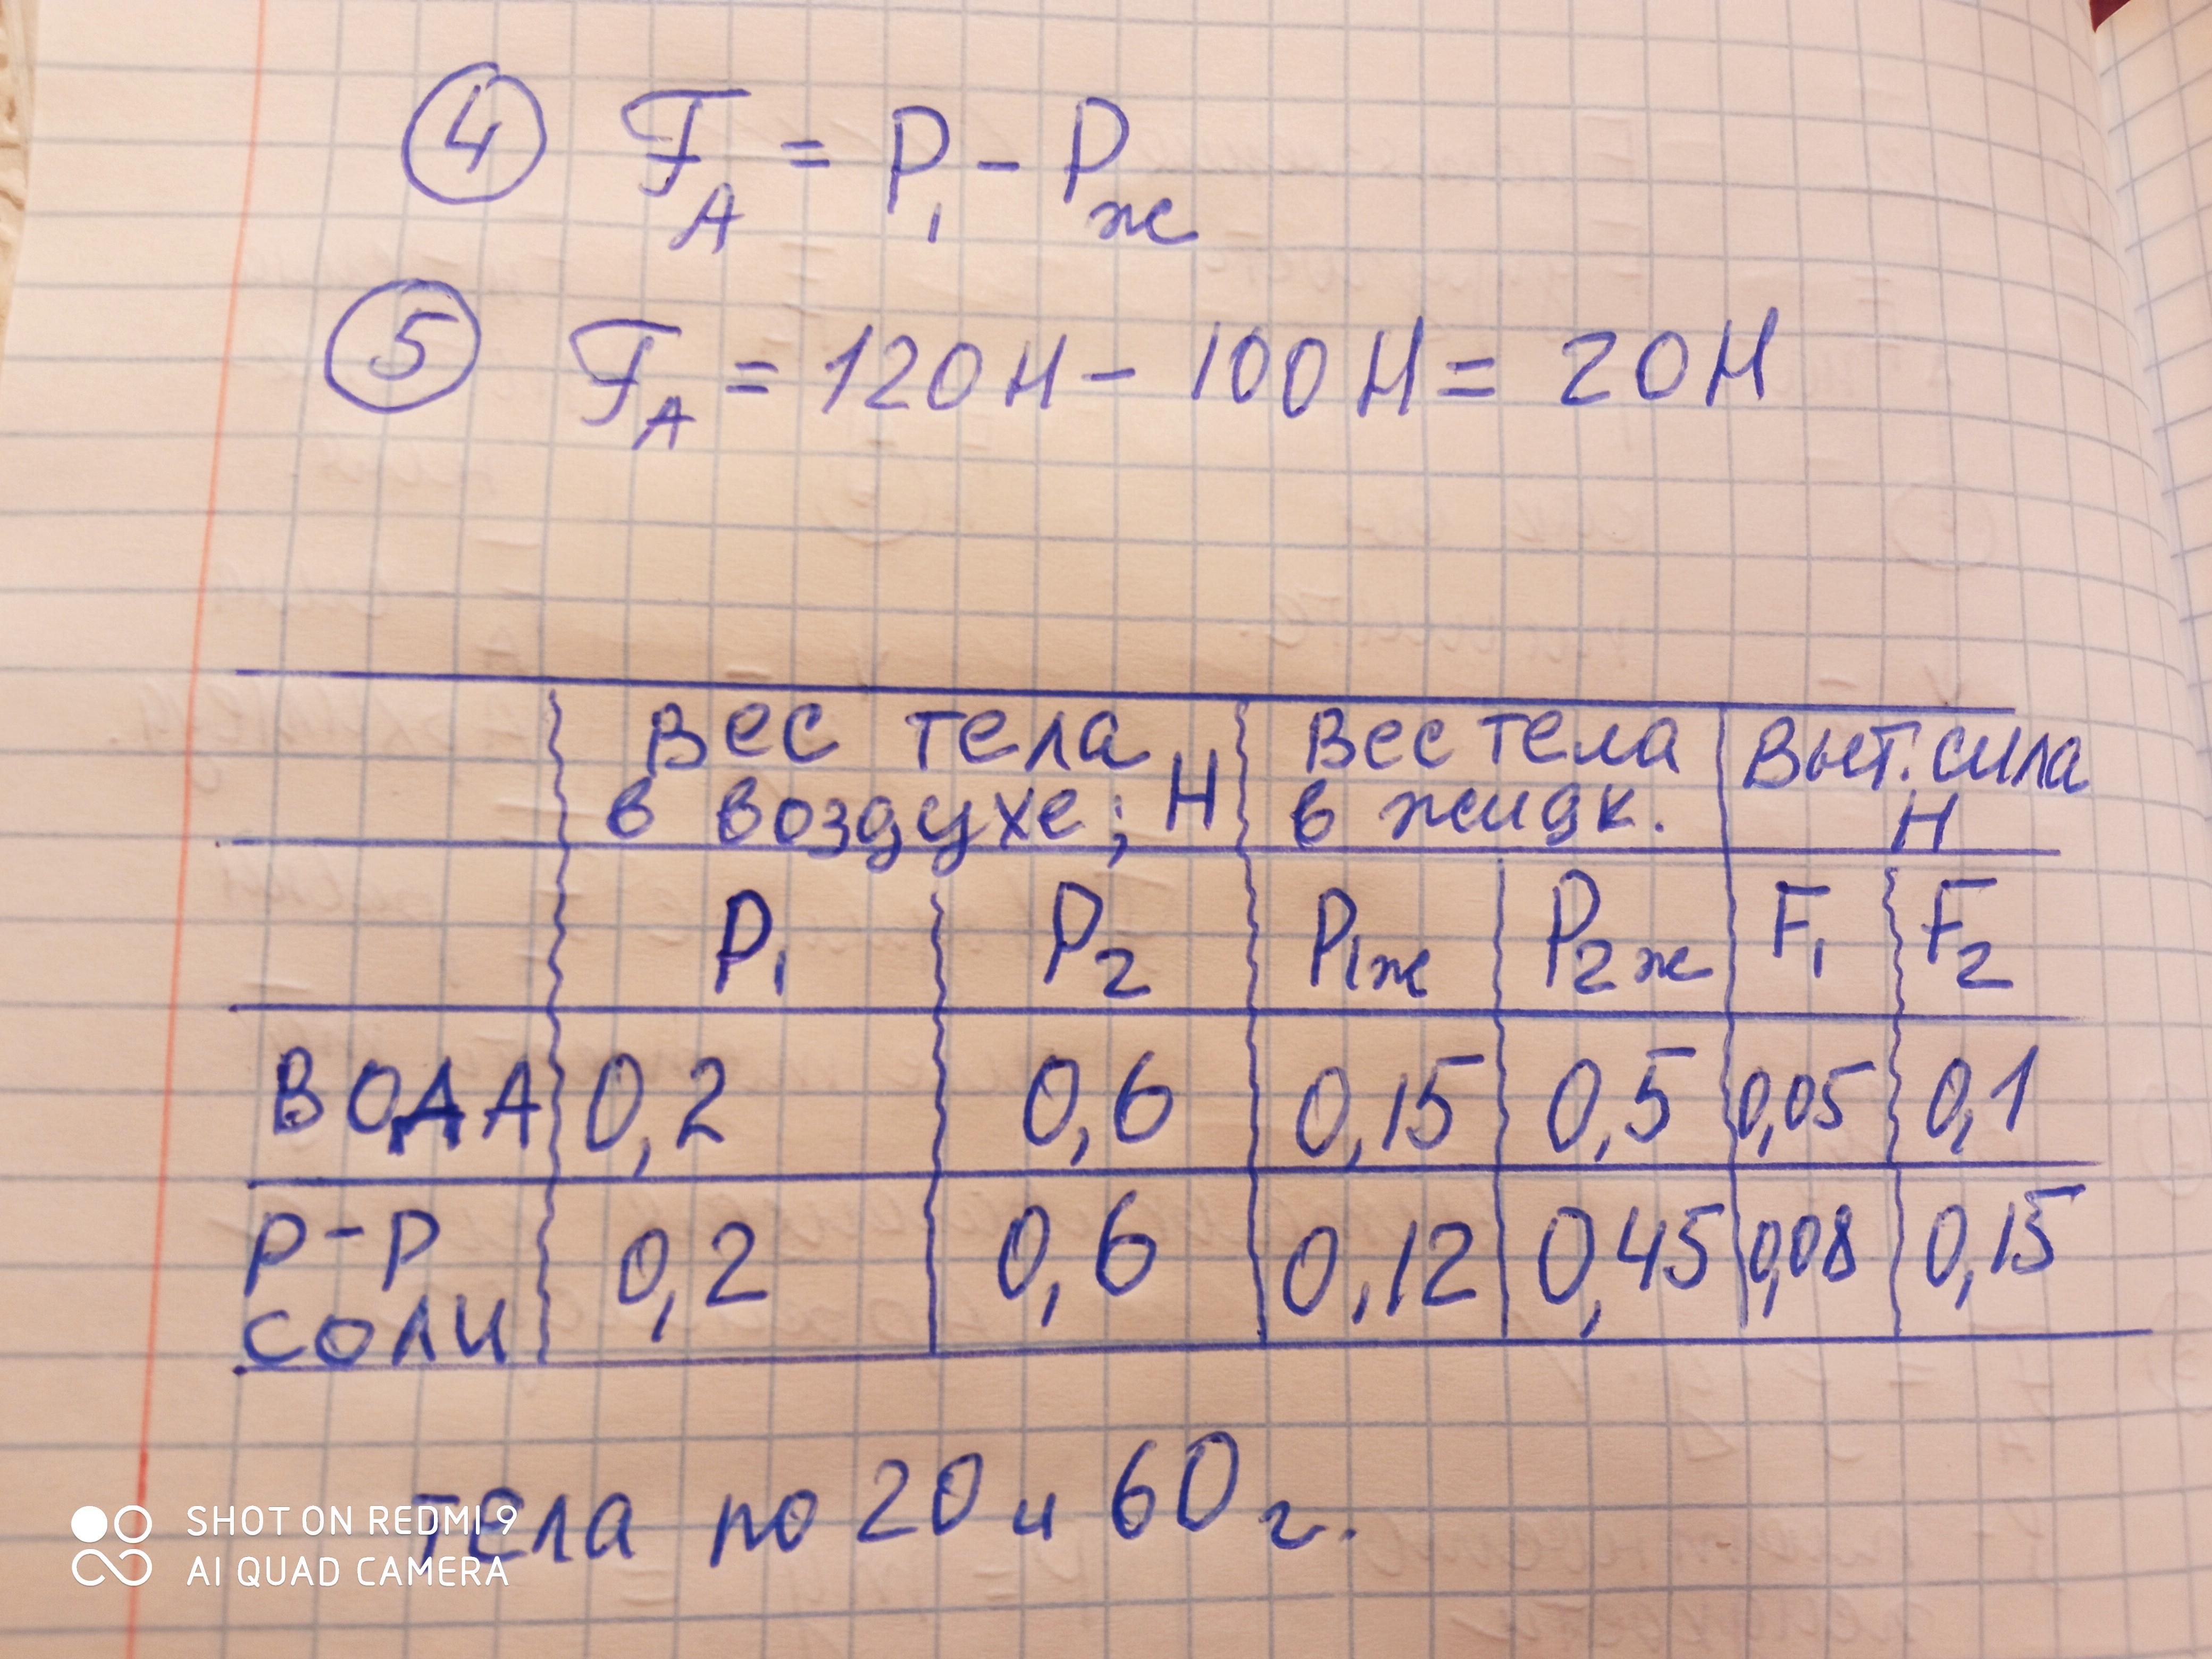 4 FА = P1 - Pж
5 FА = 120Н - 100Н = 20Н
Вес тела в воздухе; Н Вес тела в жидк. Выт. сила Н
P1 P2 P1ж P2ж F1 F2
ВОДА 0,2 0,6 0,15 0,5 0,05 0,1
Р-Р СОЛИ 0,2 0,6 0,12 0,45 0,08 0,15
тела по 20 и 60 г.
SHOT ON REDMI 9
AI QUAD CAMERA